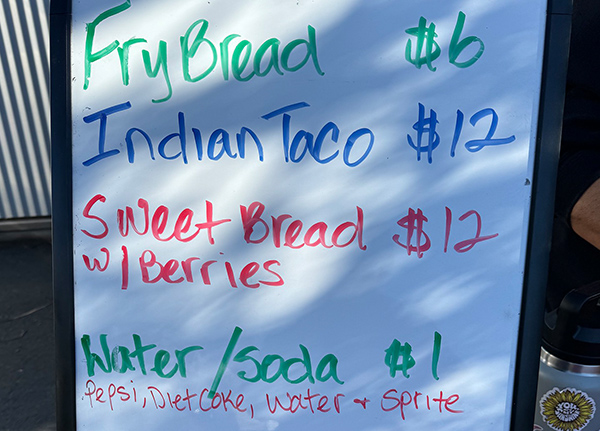 Fry Bread $6
Indian Taco $12
Sweet Bread $12
w/Berries
Water/soda $1
Pepsi, Diet Coke, Water + Sprite